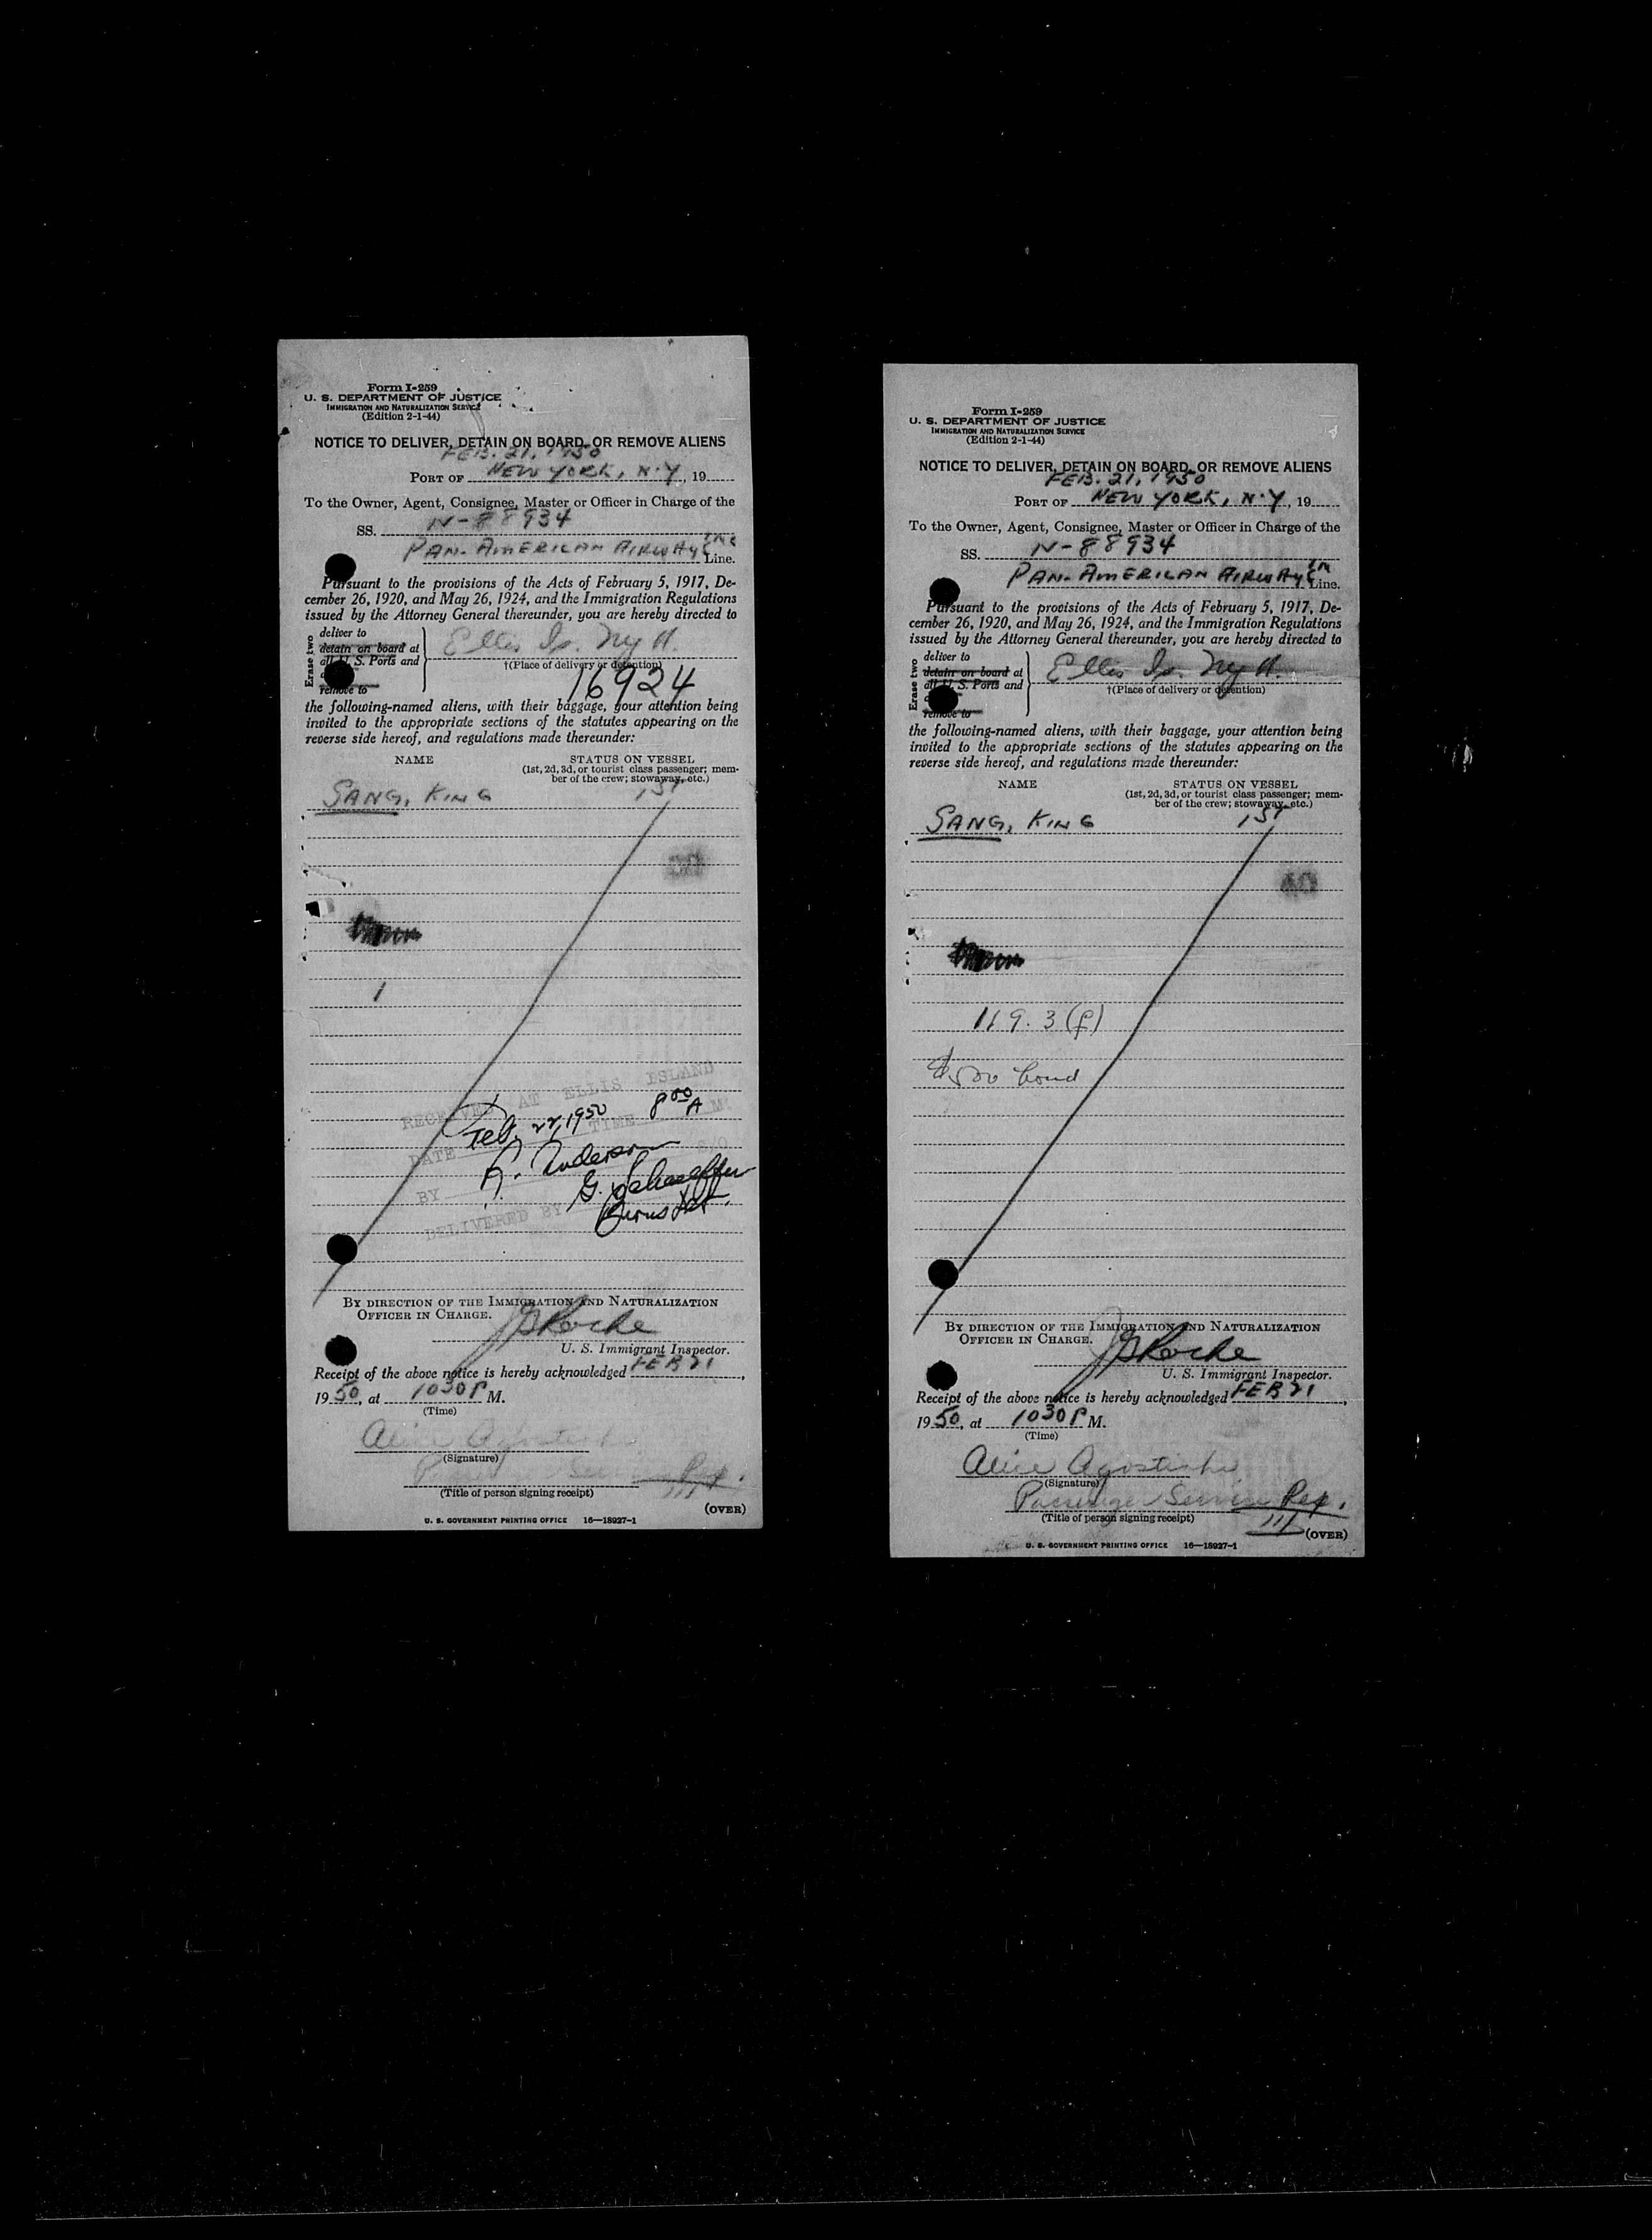 Form I-259
U. S. DEPARTMENT OF JUSTICE
IMMIGRATION AND NATURALIZATION SERVICE
(Edition 2-1-44)
NOTICE TO DELIVER, DETAIN ON BOARD, OR REMOVE ALIENS
FEB. 21, 1950
PORT OF NEW YORK, N.Y., 19
To the Owner, Agent, Consignee, Master or Officer in Charge of the
SS. N-88934
PAN. AMERICAN AIRWAYS INC Line.
Pursuant to the provisions of the Acts of February 5, 1917, De-
cember 26, 1920, and May 26, 1924, and the Immigration Regulations
issued by the Attorney General thereunder, you are hereby directed to
Erase two
deliver to
detain on board at
all U. S. Ports and
remove to
Ellis Is. Ny H.
†(Place of delivery or detention)
16924
the following-named aliens, with their baggage, your attention being
invited to the appropriate sections of the statutes appearing on the
reverse side hereof, and regulations made thereunder:
NAME STATUS ON VESSEL
(1st, 2d, 3d, or tourist class passenger; mem-
ber of the crew; stowaway, etc.)
SANG, KING 1ST
1
RECEIVED AT ELLIS ISLAND
DATE Feb. 22, 1950 TIME 8 00 A M
BY A. Anderson
DELIVERED BY G. Schaeffer
Burns Det.
BY DIRECTION OF THE IMMIGRATION AND NATURALIZATION
OFFICER IN CHARGE.
JSRoche
U. S. Immigrant Inspector.
Receipt of the above notice is hereby acknowledged FEB 21,
1950, at 1030 P M.
(Time)
Alice
(Signature)
Rep.
(Title of person signing receipt)
(OVER)
U. S. GOVERNMENT PRINTING OFFICE 16—18927-1
Form I-259
U. S. DEPARTMENT OF JUSTICE
IMMIGRATION AND NATURALIZATION SERVICE
(Edition 2-1-44)
NOTICE TO DELIVER, DETAIN ON BOARD, OR REMOVE ALIENS
FEB. 21, 1950
PORT OF NEW YORK, N.Y., 19
To the Owner, Agent, Consignee, Master or Officer in Charge of the
SS. N-88934
PAN. AMERICAN AIRWAYS IN Line.
Pursuant to the provisions of the Acts of February 5, 1917, De-
cember 26, 1920, and May 26, 1924, and the Immigration Regulations
issued by the Attorney General thereunder, you are hereby directed to
Erase two
deliver to
detain on board at
all U. S. Ports and
remove to
Ellis Is. Ny H.
†(Place of delivery or detention)
the following-named aliens, with their baggage, your attention being
invited to the appropriate sections of the statutes appearing on the
reverse side hereof, and regulations made thereunder:
NAME STATUS ON VESSEL
(1st, 2d, 3d, or tourist class passenger; mem-
ber of the crew; stowaway, etc.)
SANG, KING 1ST
119.3 (f)
$500 bond
BY DIRECTION OF THE IMMIGRATION AND NATURALIZATION
OFFICER IN CHARGE.
JSRoche
U. S. Immigrant Inspector.
Receipt of the above notice is hereby acknowledged FEB 21,
1950, at 1030 P M.
(Time)
Alice
(Signature)
Passenger Service Rep.
(Title of person signing receipt)
(OVER)
U. S. GOVERNMENT PRINTING OFFICE 16—18927-1